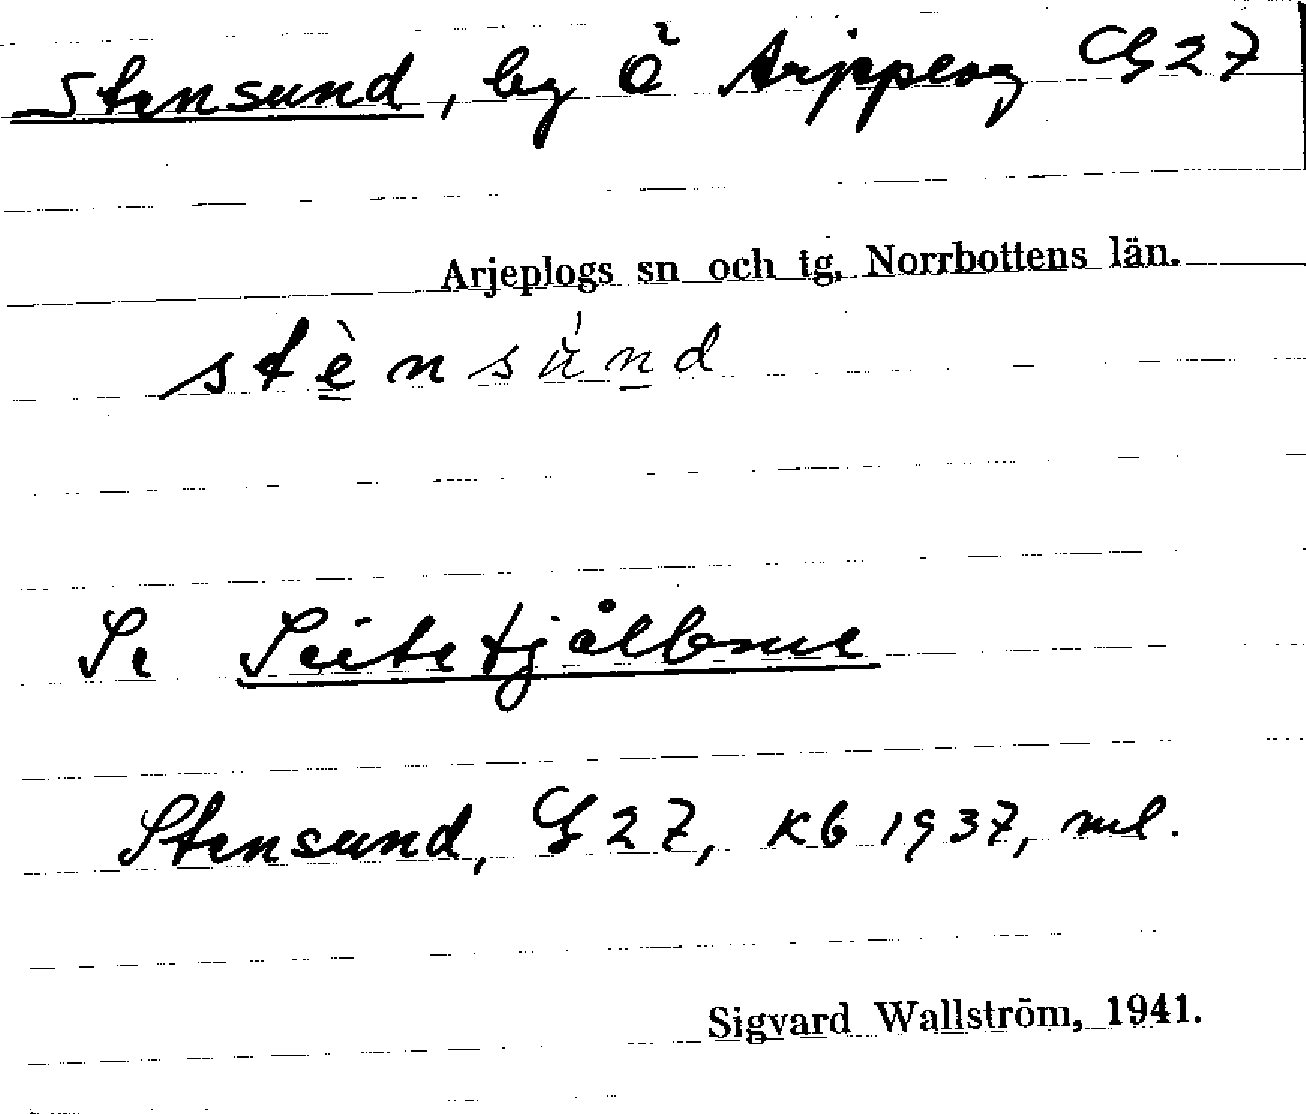 Stensund, by Ö Arjeplog G 27
Arjeplogs sn och tg, Norrbottens län.
stènsùnd
Se Seitetjålbme
Stensund, G 27, Kb 1937, ml.
Sigvard Wallström, 1941.